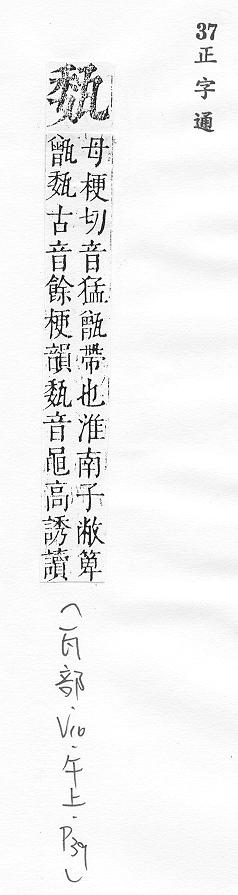 37
正字通
母梗切音猛甑帶也淮南子敝箄
甑古音餘梗韻音黽高誘讀
(瓦部.V10.午上.P39)